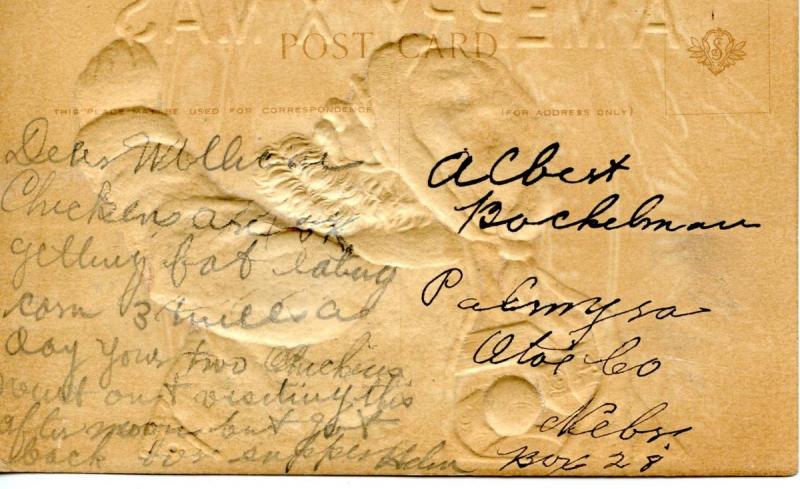 A MERRY XMAS
POST CARD
THIS PLACE MAY BE USED FOR CORRESPONDENCE
(FOR ADDRESS ONLY)
S
Dear William
Chickens are
getting fat eating
corn 3 mills a
day your two Chickens
went out visiting this
after noon but got
back for supper
Albert
Bockelman
Palmyra
Otoe Co
Nebr
Box 28